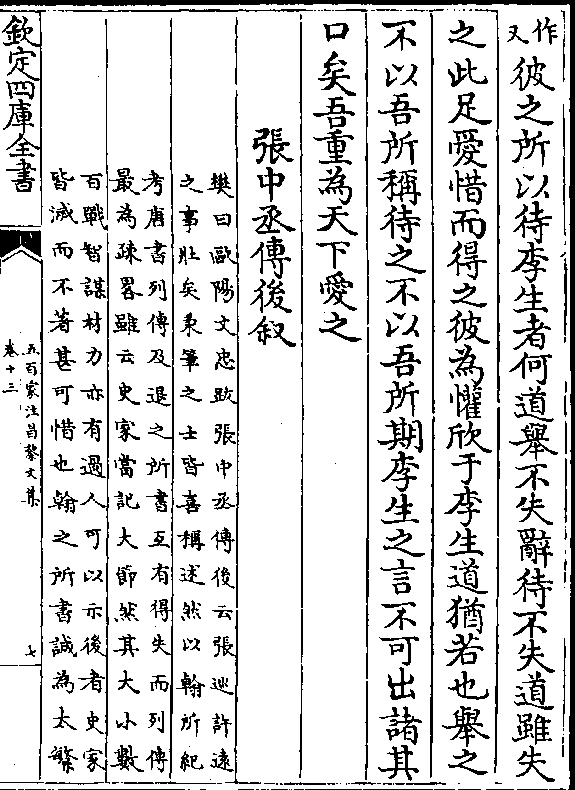 作又
彼之所以待李生者何道舉不失辭待不失道雖失
之此足愛惜而得之彼為懽欣于李生道猶若也舉之
不以吾所稱待之不以吾所期李生之言不可出諸其
口矣吾重為天下愛之
張中丞傳後叙
樊曰歐陽文忠跋張中丞傳後云張廵許遠
之事壯矣秉筆之士皆喜稱述然以翰所紀
考唐書列傳及退之所書互有得失而列傳
最為疎畧雖云史家當記大節然其大小數
百戰智謀材力亦有過人可以示後者史家
皆滅而不著甚可惜也翰之所書誠為太繁
欽定四庫全書
五百家注昌黎文集
卷十三
七